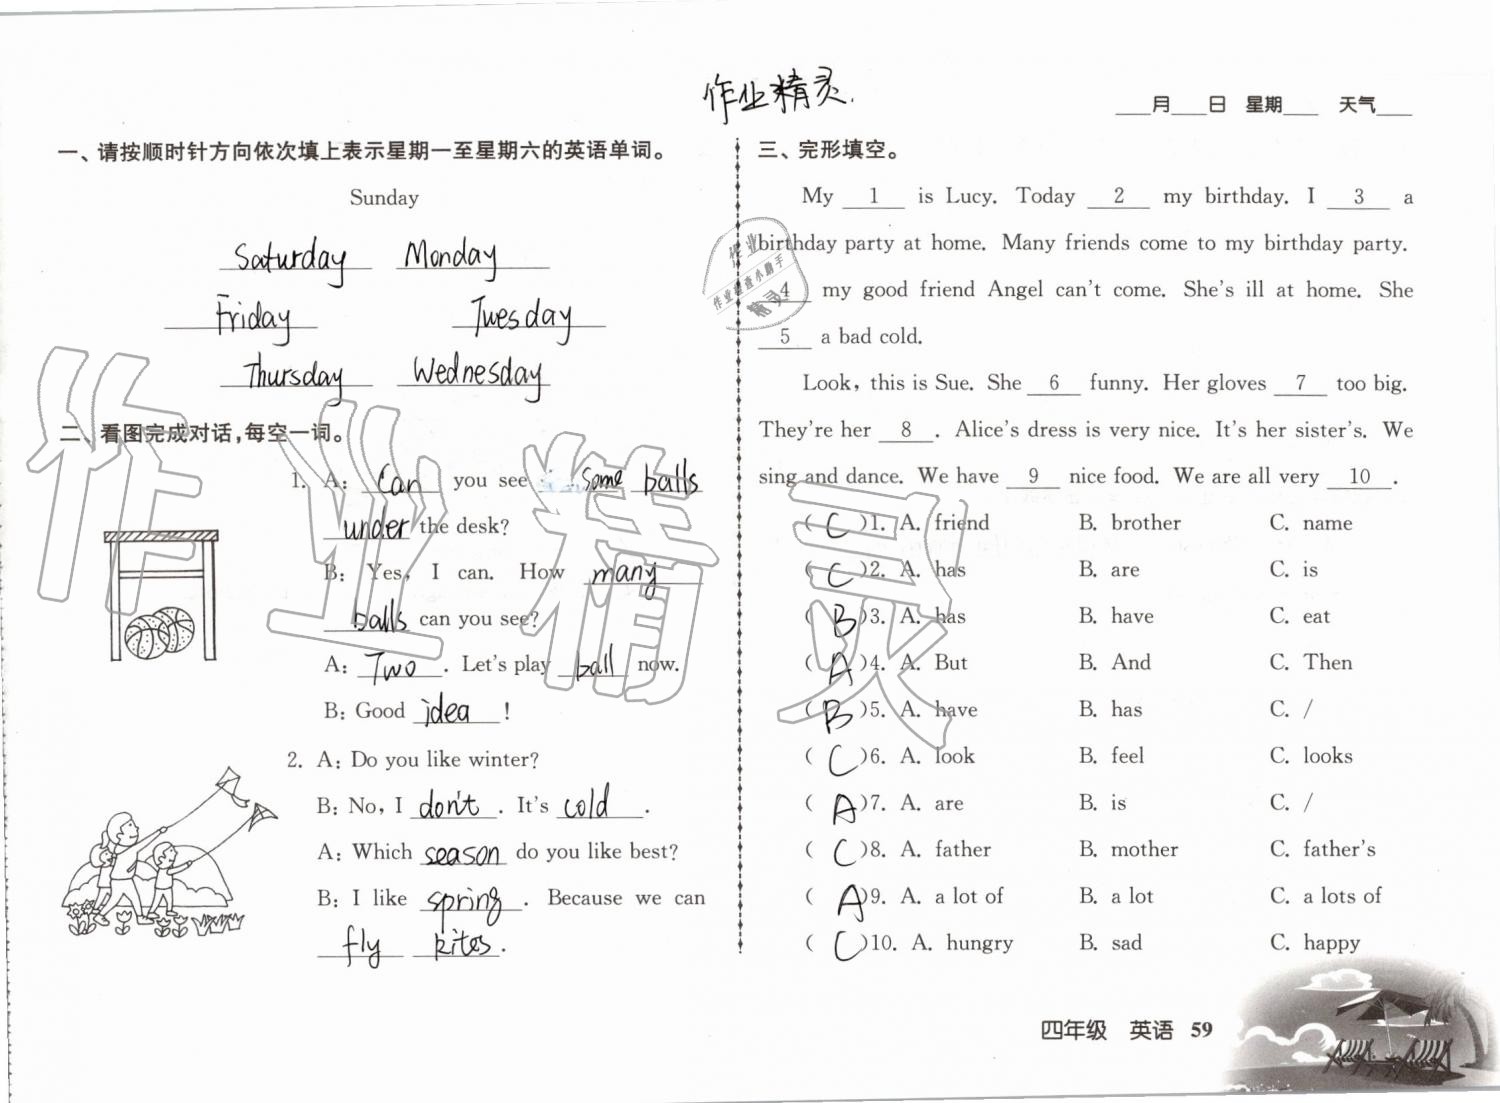 作业精灵.
___月___日 星期___ 天气___
一、请按顺时针方向依次填上表示星期一至星期六的英语单词。
Sunday
Saturday Monday
Friday Tuesday
Thursday Wednesday
二、看图完成对话,每空一词。
1. A: Can you see some balls
under the desk?
B: Yes, I can. How many
balls can you see?
A: Two. Let's play ball now.
B: Good idea!
2. A: Do you like winter?
B: No, I don't. It's cold.
A: Which season do you like best?
B: I like spring. Because we can
fly kites.
三、完形填空。
My 1 is Lucy. Today 2 my birthday. I 3 a
birthday party at home. Many friends come to my birthday party.
4 my good friend Angel can't come. She's ill at home. She
5 a bad cold.
Look, this is Sue. She 6 funny. Her gloves 7 too big.
They're her 8. Alice's dress is very nice. It's her sister's. We
sing and dance. We have 9 nice food. We are all very 10.
( C )1. A. friend B. brother C. name
( C )2. A. has B. are C. is
( B )3. A. has B. have C. eat
( A )4. A. But B. And C. Then
( B )5. A. have B. has C. /
( C )6. A. look B. feel C. looks
( A )7. A. are B. is C. /
( C )8. A. father B. mother C. father's
( A )9. A. a lot of B. a lot C. a lots of
( C )10. A. hungry B. sad C. happy
四年级 英语 59
作业精灵
作业
作业检查小助手
精灵